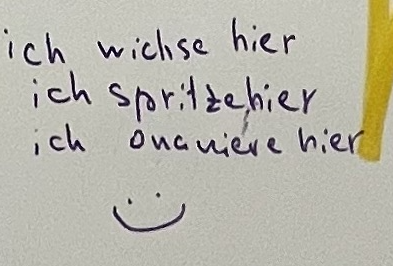 ich wichse hier
ich spritze hier
ich onaniere hier